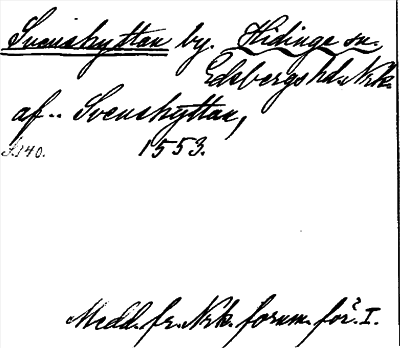 Svenshyttan by. Hidinge sn.
Edsbergs hd. Nrk.
af.. Svenshyttan,
S.140. 1553.
Medd. fr. Nrk. fornm. för. I.